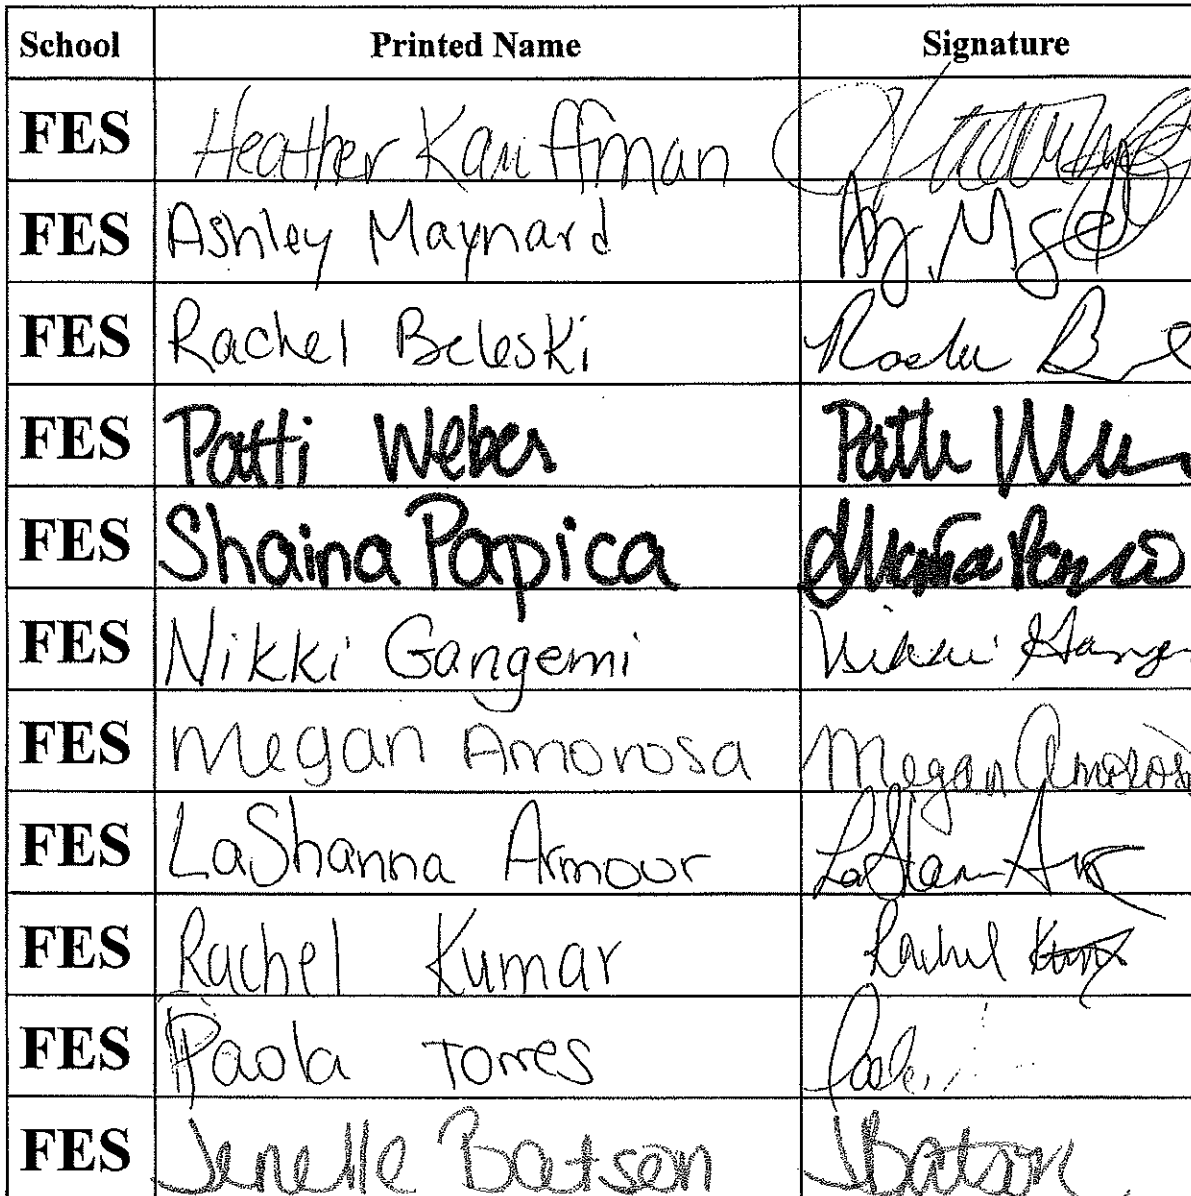 School Printed Name Signature
FES Heather Kauffman
FES Ashley Maynard
FES Rachel Beleski
FES Patti Weber Patti
FES Shaina Papica Shaina
FES Nikki Gangemi Nikki
FES Megan Amorosa Megan Amorosa
FES LaShanna Armour
FES Rachel Kumar Rachel
FES Paola Torres
FES Jenelle Batson JBatson